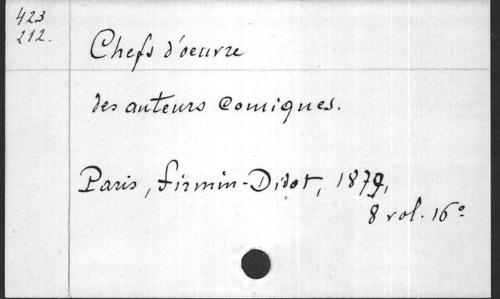 423
212.
Chefs d'oeuvre
des auteurs comiques.
Paris, Firmin-Didot, 1879,
8 vol. 16°